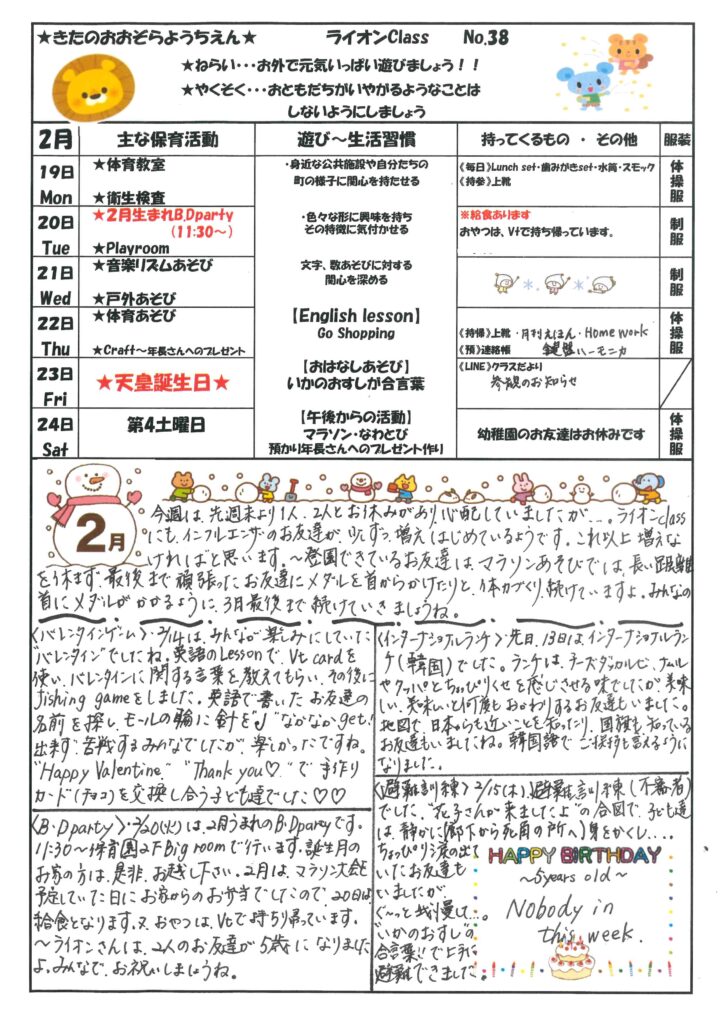 ★きたのおおぞらようちえん★ ライオンClass No.38
★ねらい・・・お外で元気いっぱい遊びましょう!!
★やくそく・・・おともだちがいやがるようなことは
しないようにしましょう
2月 主な保育活動 遊び~生活習慣 持ってくるもの ・ その他 服装
19日 Mon
★体育教室
★衛生検査
・身近な公共施設や自分たちの
町の様子に関心を持たせる
《毎日》Lunch set・歯みがきset・水筒・スモック
《持参》上靴
体操服
20日 Tue
★2月生まれB.Dparty
(11:30~)
★Playroom
・色々な形に興味を持ち
その特徴に気付かせる
※給食あります
おやつは、Vtで持ち帰っています。
制服
21日 Wed
★音楽リズムあそび
★戸外あそび
文字、数あそびに対する
関心を深める
制服
22日 Thu
★体育あそび
★Craft~年長さんへのプレゼント
【English lesson】
Go Shopping
《持帰》上靴・月刊えほん・Home work
《預》連絡帳 鍵盤ハーモニカ
体操服
23日 Fri
★天皇誕生日★
【おはなしあそび】
いかのおすしが合言葉
《LINE》クラスだより
参観のお知らせ
24日 Sat
第4土曜日
【午後からの活動】
マラソン・なわとび
預かり年長さんへのプレゼント作り
幼稚園のお友達はお休みです
体操服
2月
今週は、先週末より1人、2人とお休みがあり、心配していましたが...。ライオンclass
にも、インフルエンザのお友達が、少しずつ、増えはじめているようです。これ以上増えな
ければと思います。~登園できているお友達は、マラソンあそびでは、長い距離
を休まず、最後まで頑張ったお友達にメダルを首からかけたりと、体力づくり、続けていますよ。みんなの
首にメダルがかかるように、3月最後まで続けていきましょうね。
〈バレンタインゲーム〉・2/14は、みんなが楽しみにしていた
"バレンタイン"でしたね。英語のLessonで、Vt cardを
使い、バレンタインに関する言葉を教えてもらい、その後に
fishing gameをしました。英語で書いたお友達の
名前を探し、モールの輪に針を"J"なかなかget!
出来ず、苦戦するみんなでしたが、楽しかったですね。
"Happy Valentine" "Thank you♡"で手作り
カード(チョコ)を交換し合う子ども達でした♡♡
〈インターナショナルランチ〉・先日、13日は、インターナショナルラン
チ(韓国)でした。ランチは、チーズダッカルビ、ナムル
やクッパとちょっぴりくせを感じさせる味でしたが、美味
しい、美味しいと何度もおかわりするお友達もいました。
地図で、日本からも近いことを知ったり、国旗も知っている
お友達もいましたね。韓国語でご挨拶も言えるように
なりました。
〈B・Dparty〉・2/20(火)は、2月うまれのB・Dpartyです。
11:30~保育園2F Big roomで行います。誕生月の
お家の方は、是非、お越し下さい。2月は、マラソン大会を
予定していた日にお家からのお弁当でしたので、20日は
給食となります。又、おやつは、Vtで持ち帰っています。
~ライオンさんは、2人のお友達が5歳になりました
よ。みんなで、お祝いしましょうね。
〈避難訓練〉・2/15(木)、避難訓練(不審者)
でした、"花子さんが来ましたよ"の合図で、子ども達
は、静かに(廊下から死角の所へ)身をかくし、...
ちょっぴり涙の出て
いたお友達も
いましたが、
ぐ~っと我慢して...。
"いかのおすし"の
合言葉!!で上手に
避難できました。
HAPPY BIRTHDAY
~5years old~
Nobody in
this week.